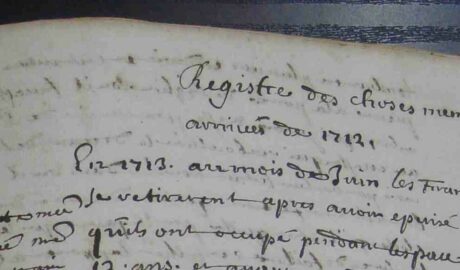 Régistre des choses mem
arrivées de 1713.
En 1713. au mois de Juin les Fran
se retirerent apres avoir epuisé
qu'ils ont occupé pendant l'espace
12. ans. et